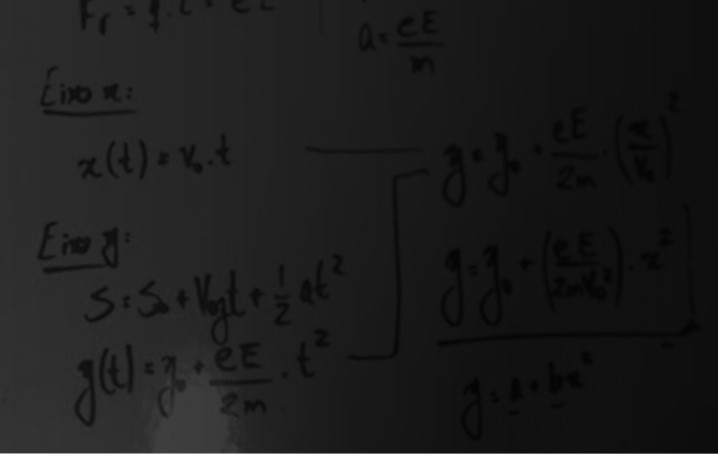 a = eE/m
Eixo x:
x(t) = V₀.t
Eixo y:
S = S₀ + V₀yt + 1/2 at²
y(t) = y₀ + eE/2m . t²
y = y₀ + eE/2m . (x/V₀)²
y = y₀ + (eE/2mV₀²) . x²
y = a + bx²